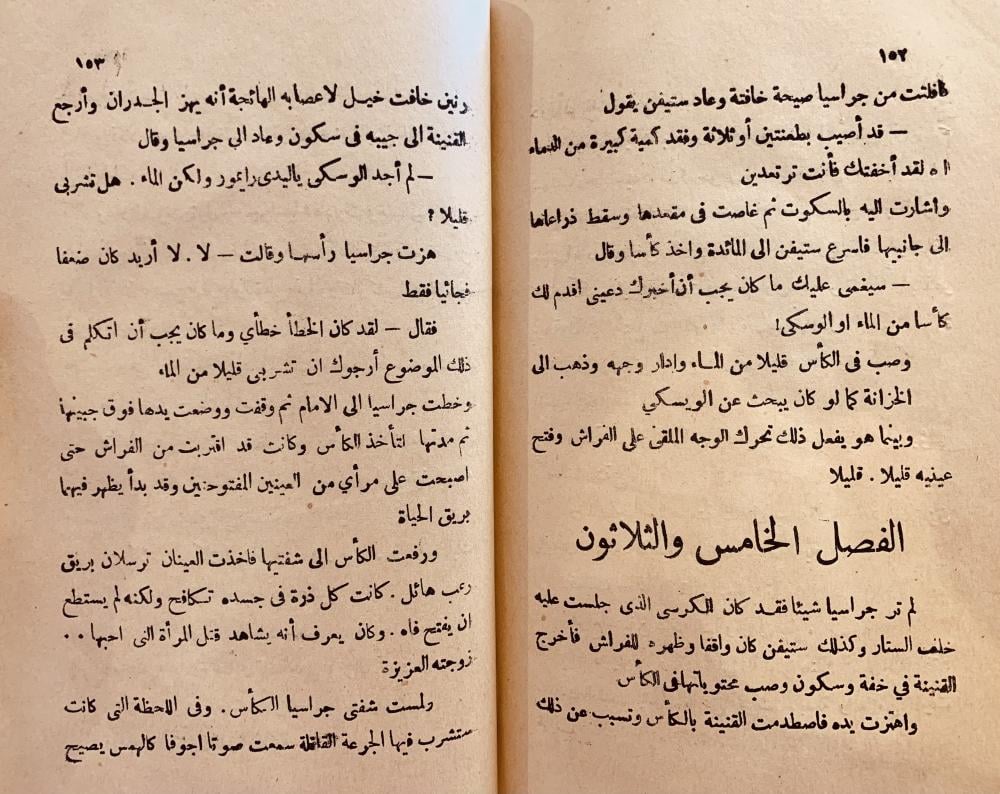 ١٥٢
فافلتت من جراسيا صيحة خافتة وعاد ستيفن يقول
— قد أصيب بطعنتين أو ثلاثة وفقد كمية كبيرة من الدماء
اه لقد أخفتك فأنت ترتعدين
واشارت اليه بالسكوت ثم غاصت فى مقعدها وسقط ذراعاها
الى جانبيها فاسرع ستيفن الى المائدة واخذ كأسا وقال
— سيغمى عليك ما كان يجب أن أخبرك دعينى اقدم لك
كأسا من الماء او الوسكى !
وصب فى الكأس قليلا من الماء وادار وجهه وذهب الى
الخزانة كما لو كان يبحث عن الويسكي
وبينما هو يفعل ذلك تحرك الوجه الملقى على الفراش وفتح
عينيه قليلا . قليلا
الفصل الخامس والثلاثون
لم تر جراسيا شيئا فقد كان الكرسى الذى جلست عليه
خلف الستار وكذلك ستيفن كان واقفا وظهره للفراش فأخرج
القنينة في خفة وسكون وصب محتوياتها فى الكأس
واهتزت يده فاصطدمت القنينة بالكأس وتسبب عن ذلك
١٥٣
رنين خافت خيل لاعصابه الهائجة أنه يهز الجدران وأرجع
القنينة الى جيبه فى سكون وعاد الي جراسيا وقال
— لم أجد الوسكى ياليدى رايمور ولكن الماء . هل تشربى
قليلا ؟
هزت جراسيا رأسها وقالت — لا . لا أريد كان ضعفا
فجائيا فقط
فقال — لقد كان الخطأ خطأي وما كان يجب أن اتكلم فى
ذلك الموضوع أرجوك ان تشربى قليلا من الماء
وخطت جراسيا الى الامام ثم وقفت ووضعت يدها فوق جبينها
ثم مدتها لتأخذ الكأس وكانت قد اقتربت من الفراش حتى
اصبحت على مرأي من العينين المفتوحتين وقد بدأ يظهر فيهما
بريق الحياة
ورفعت الكأس الى شفتيها فاخذت العينان ترسلان بريق
رعب هائل . كانت كل ذرة فى جسده تكافح ولكنه لم يستطع
ان يفتح فاه . وكان يعرف أنه يشاهد قتل المرأة التى احبها . .
زوجته العزيزة
ولمست شفتي جراسيا الكأس . وفى اللحظة التى كانت
ستشرب فيها الجرعة القاتلة سمعت صوتا اجوفا كالهمس يصيح